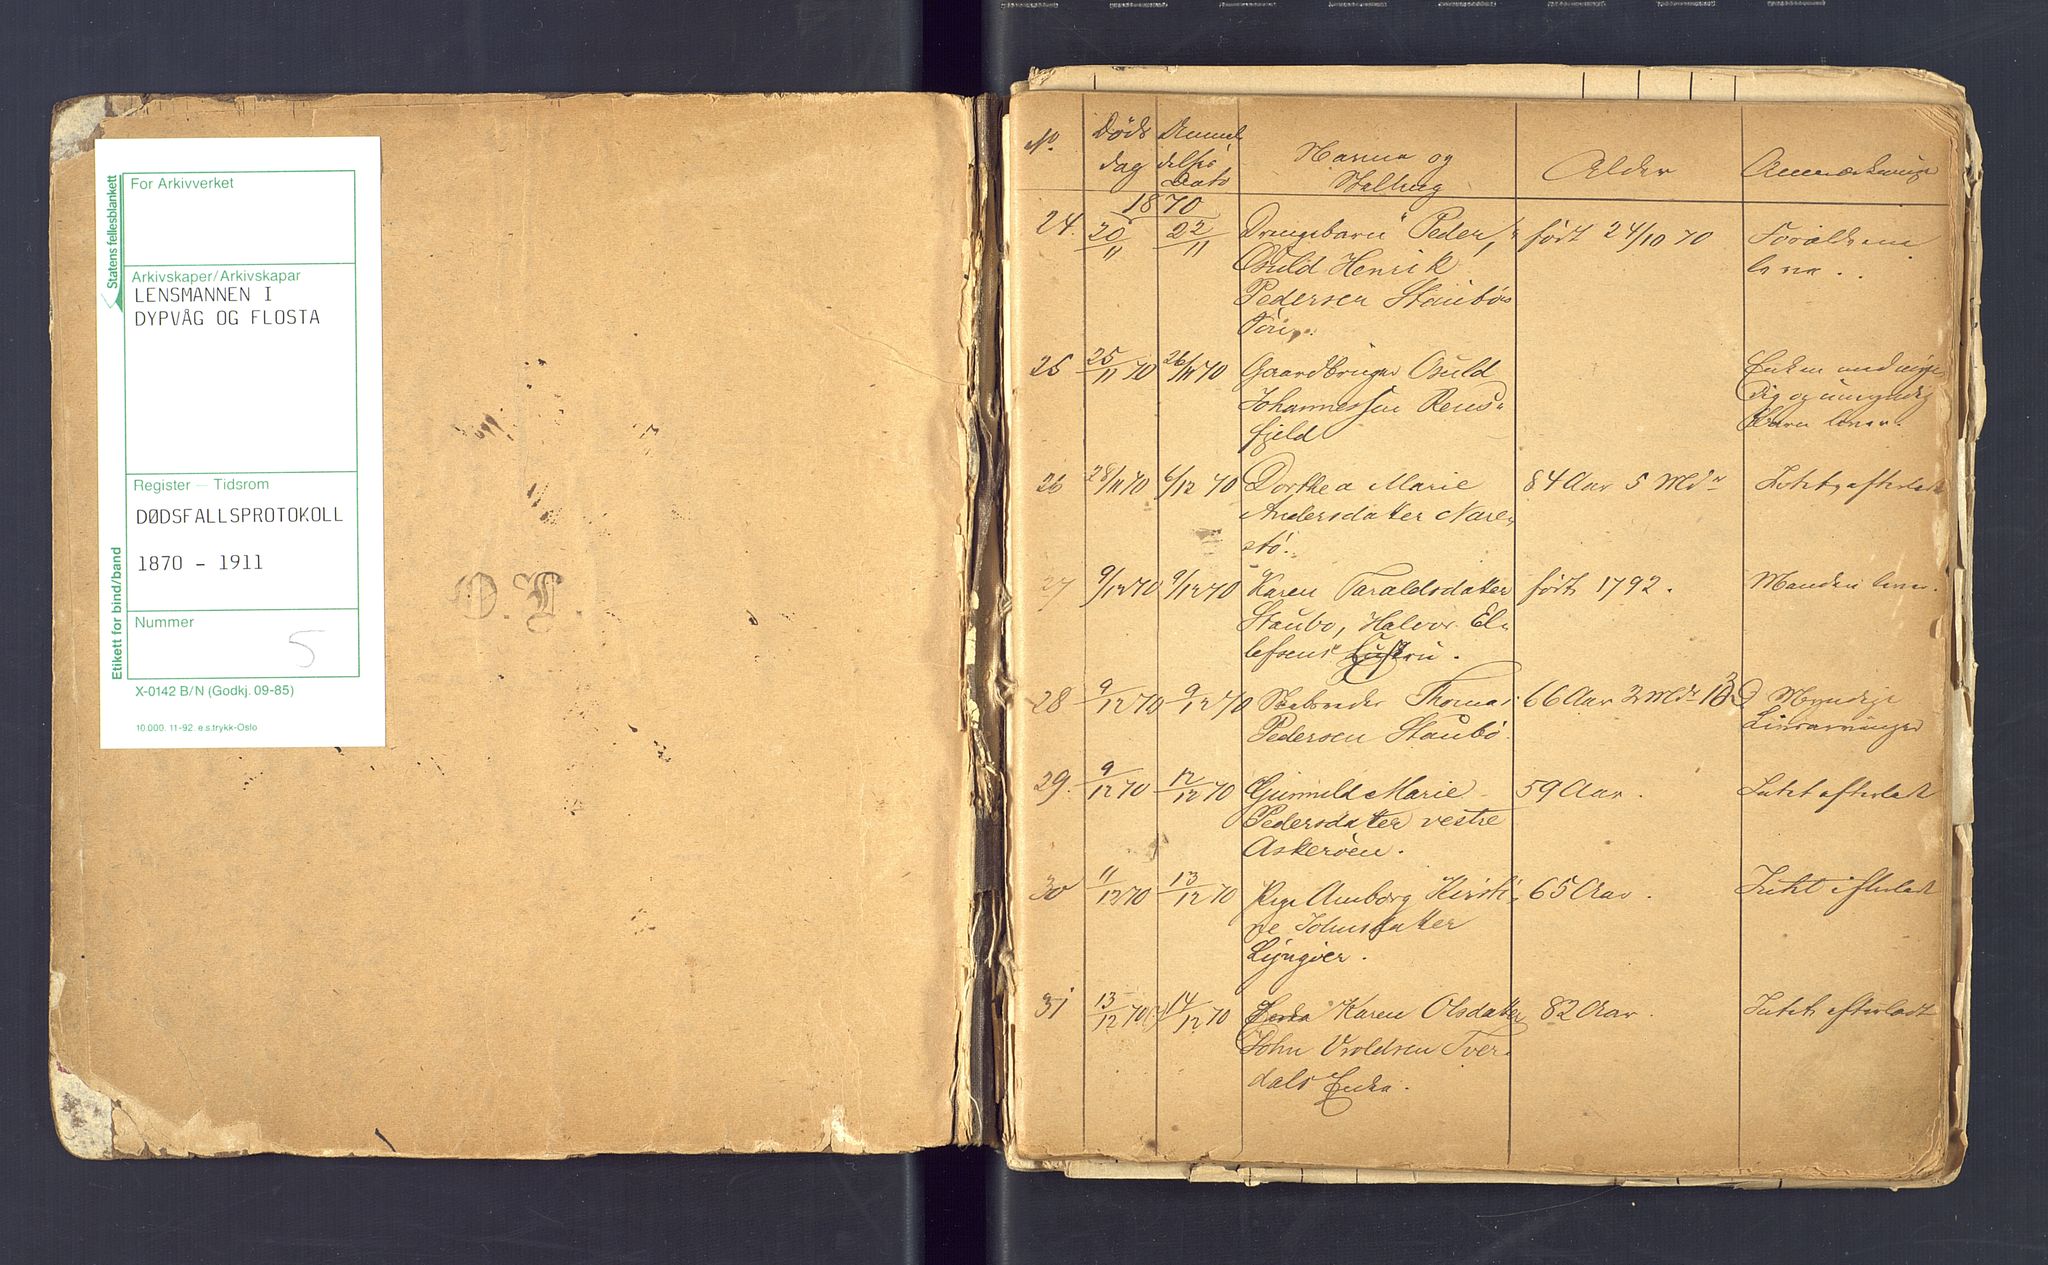 For Arkivverket
Statens fellesblankett
Arkivskaper/Arkivskapar
LENSMANNEN I
DYPVÅG OG FLOSTA
Register — Tidsrom
DØDSFALLSPROTOKOLL
1870 - 1911
Etikett for bind/band
Nummer
5
X-0142 B/N (Godkj. 09-85)
10.000. 11-92 e.s.trykk-Oslo
No. Døds Anmel Navne og Alder Anmærkninger
dag delses Stilling
Dato
1870
24. 20/11 22/11 Drengebarn Peder født 24/10 70 Forældrene
Osuld Henrik leve.
Pedersen Staubø
25 25/11 70 26/11 70 Gaardbruger Osuld Enken und myn
Johannessen Rens- dig og umyndig
fjeld Børn lever.
26 28/11 70 6/12 70 Dorthea Marie 84 Aar 5 Mdr Intet efterladt
Andersdatter Nare-
stø.
27 9/12 70 9/12 70 Karen Taraldsdatter født 1792. Manden lever.
Staubo, Halvor El-
lefsens Hustru.
28 9/12 70 9/12 70 Thomas 66 Aar 2 Mdr D Myndige
Pedersen Staubø. Livsarvinger
29. 9/12 70 12/12 70 Gunnild Marie 59 Aar. Intet efterladt
Pedersdatter vestre
Askerøen.
30 11/12 70 13/12 70 Pige Amborg Kirsti- 65 Aar. Intet efterladt
ne Johnsdatter
Lyngøer.
31 13/12 70 14/12 70 Karen Olsdatter 82 Aar. Intet efterladt
John Vroldsen Tver-
dals Enke.